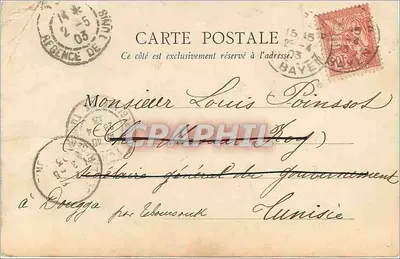 14 *
2 -5
03
REGENCE DE TUNIS
CARTE POSTALE
Ce côté est exclusivement réservé à l'adresse
15 45
BAYEUX
Monsieur Louis Poinssot
Chez Monsieur Roy
CPARAMA
Secrétaire général du gouvernement
à Dougga par Téboursouk Tunisie